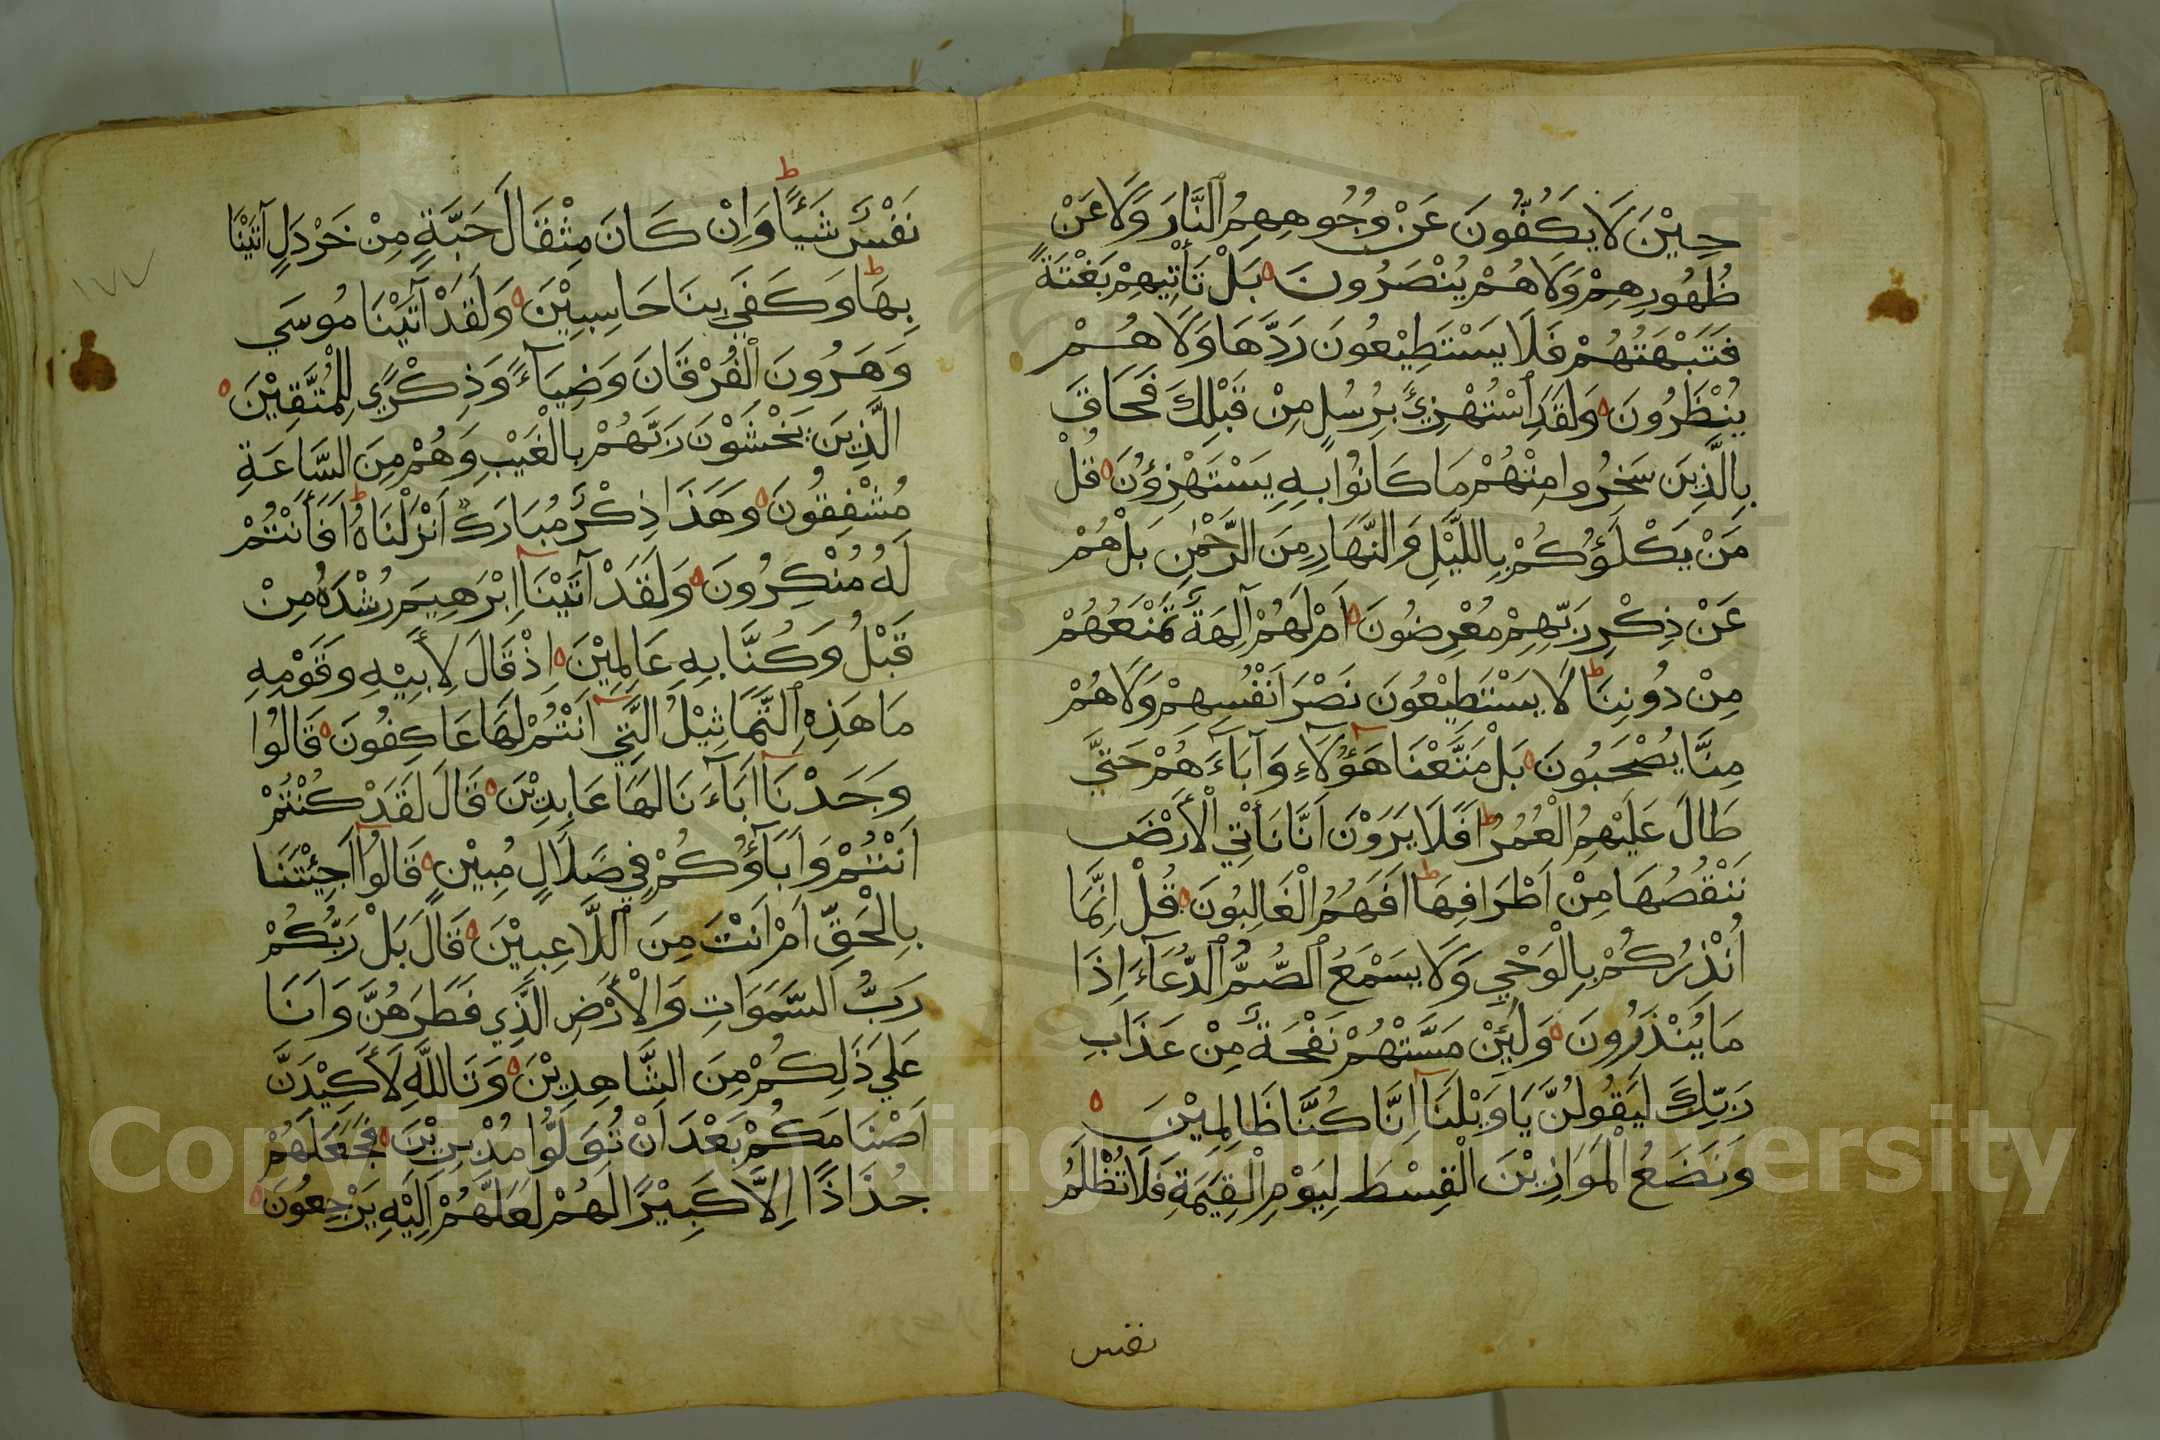 حِيْنَ لَا يَكُفُّونَ عَنْ وُجُوهِهِمُ النَّارَ وَلَا عَنْ
ظُهُورِهِمْ وَلَا هُمْ يُنْصَرُونَ ه بَلْ تَأْتِيهِمْ بَغْتَةً
فَتَبْهَتُهُمْ فَلَا يَسْتَطِيْعُونَ رَدَّهَا وَلَا هُمْ
يُنْظَرُونَ ه وَلَقَدِ اسْتُهْزِئَ بِرُسُلٍ مِنْ قَبْلِكَ فَحَاقَ
بِالَّذِينَ سَخِرُوا مِنْهُمْ مَا كَانُوا بِهِ يَسْتَهْزِؤُنَ ه قُلْ
مَنْ يَكْلَؤُكُمْ بِاللَّيْلِ وَالنَّهَارِ مِنَ الرَّحْمٰنِ بَلْ هُمْ
عَنْ ذِكْرِ رَبِّهِمْ مُعْرِضُونَ ه اَمْ لَهُمْ آلِهَةٌ تَمْنَعُهُمْ
مِنْ دُونِنَا ط لَا يَسْتَطِيْعُونَ نَصْرَ اَنْفُسِهِمْ وَلَا هُمْ
مِنَّا يُصْحَبُونَ ه بَلْ مَتَّعْنَا هَؤُلَاءِ وَآبَاءَهُمْ حَتَّى
طَالَ عَلَيْهِمُ الْعُمُرُ ط اَفَلَا يَرَوْنَ اَنَّا نَأْتِي الْأَرْضَ
نَنْقُصُهَا مِنْ اَطْرَافِهَا ط اَفَهُمُ الْغَالِبُونَ ه قُلْ اِنَّمَا
اُنْذِرُكُمْ بِالْوَحْيِ وَلَا يَسْمَعُ الصُّمُّ الدُّعَاءَ اِذَا
مَا يُنْذَرُونَ ه وَلَئِنْ مَسَّتْهُمْ نَفْحَةٌ مِنْ عَذَابِ
رَبِّكَ لَيَقُولُنَّ يَا وَيْلَنَا اِنَّا كُنَّا ظَالِمِيْنَ ه
وَنَضَعُ الْمَوَازِيْنَ الْقِسْطَ لِيَوْمِ الْقِيَمَةِ فَلَا تُظْلَمُ
نفس
نَفْسٌ شَيْأً ط وَاِنْ كَانَ مِثْقَالَ حَبَّةٍ مِنْ خَرْدَلٍ آتَيْنَا
بِهَا ط وَكَفَي بِنَا حَاسِبِيْنَ ه وَلَقَدْ آتَيْنَا مُوسَي
وَهَرُونَ الْفُرْقَانَ وَضِيَاءً وَذِكْرًي لِلْمُتَّقِيْنَ ه
الَّذِينَ يَخْشَوْنَ رَبَّهُمْ بِالْغَيْبِ وَهُمْ مِنَ السَّاعَةِ
مُشْفِقُونَ ه وَهَذَا ذِكْرٌ مُبَارَكٌ اَنْزَلْنَاهُ ط اَفَأَنْتُمْ
لَهُ مُنْكِرُونَ ه وَلَقَدْ آتَيْنَا اِبْرَهِيمَ رُشْدَهُ مِنْ
قَبْلُ وَكُنَّا بِهِ عَالِمِيْنَ ه اِذْ قَالَ لِأَبِيْهِ وَقَوْمِهِ
مَا هَذِهِ التَّمَاثِيْلُ الَّتِي اَنْتُمْ لَهَا عَاكِفُونَ ه قَالُوا
وَجَدْنَا اَبَاءَنَا لَهَا عَابِدِيْنَ ه قَالَ لَقَدْ كُنْتُمْ
اَنْتُمْ وَاَبَآؤُكُمْ فِي ضَلَالٍ مُبِيْنٍ ه قَالُوا اَجِئْتَنَا
بِالْحَقِّ اَمْ اَنْتَ مِنَ اللَّاعِبِيْنَ ه قَالَ بَلْ رَبُّكُمْ
رَبُّ السَّمَوَاتِ وَالْأَرْضِ الَّذِي فَطَرَهُنَّ وَاَنَا
عَلَي ذَلِكُمْ مِنَ الشَّاهِدِيْنَ ه وَتَاللَّهِ لَأَكِيْدَنَّ
اَصْنَامَكُمْ بَعْدَ اَنْ تُوَلُّوا مُدْبِرِيْنَ ه فَجَعَلَهُمْ
جُذَاذًا اِلَّا كَبِيْرًا لَهُمْ لَعَلَّهُمْ اِلَيْهِ يَرْجِعُونَ ه
١٧٧